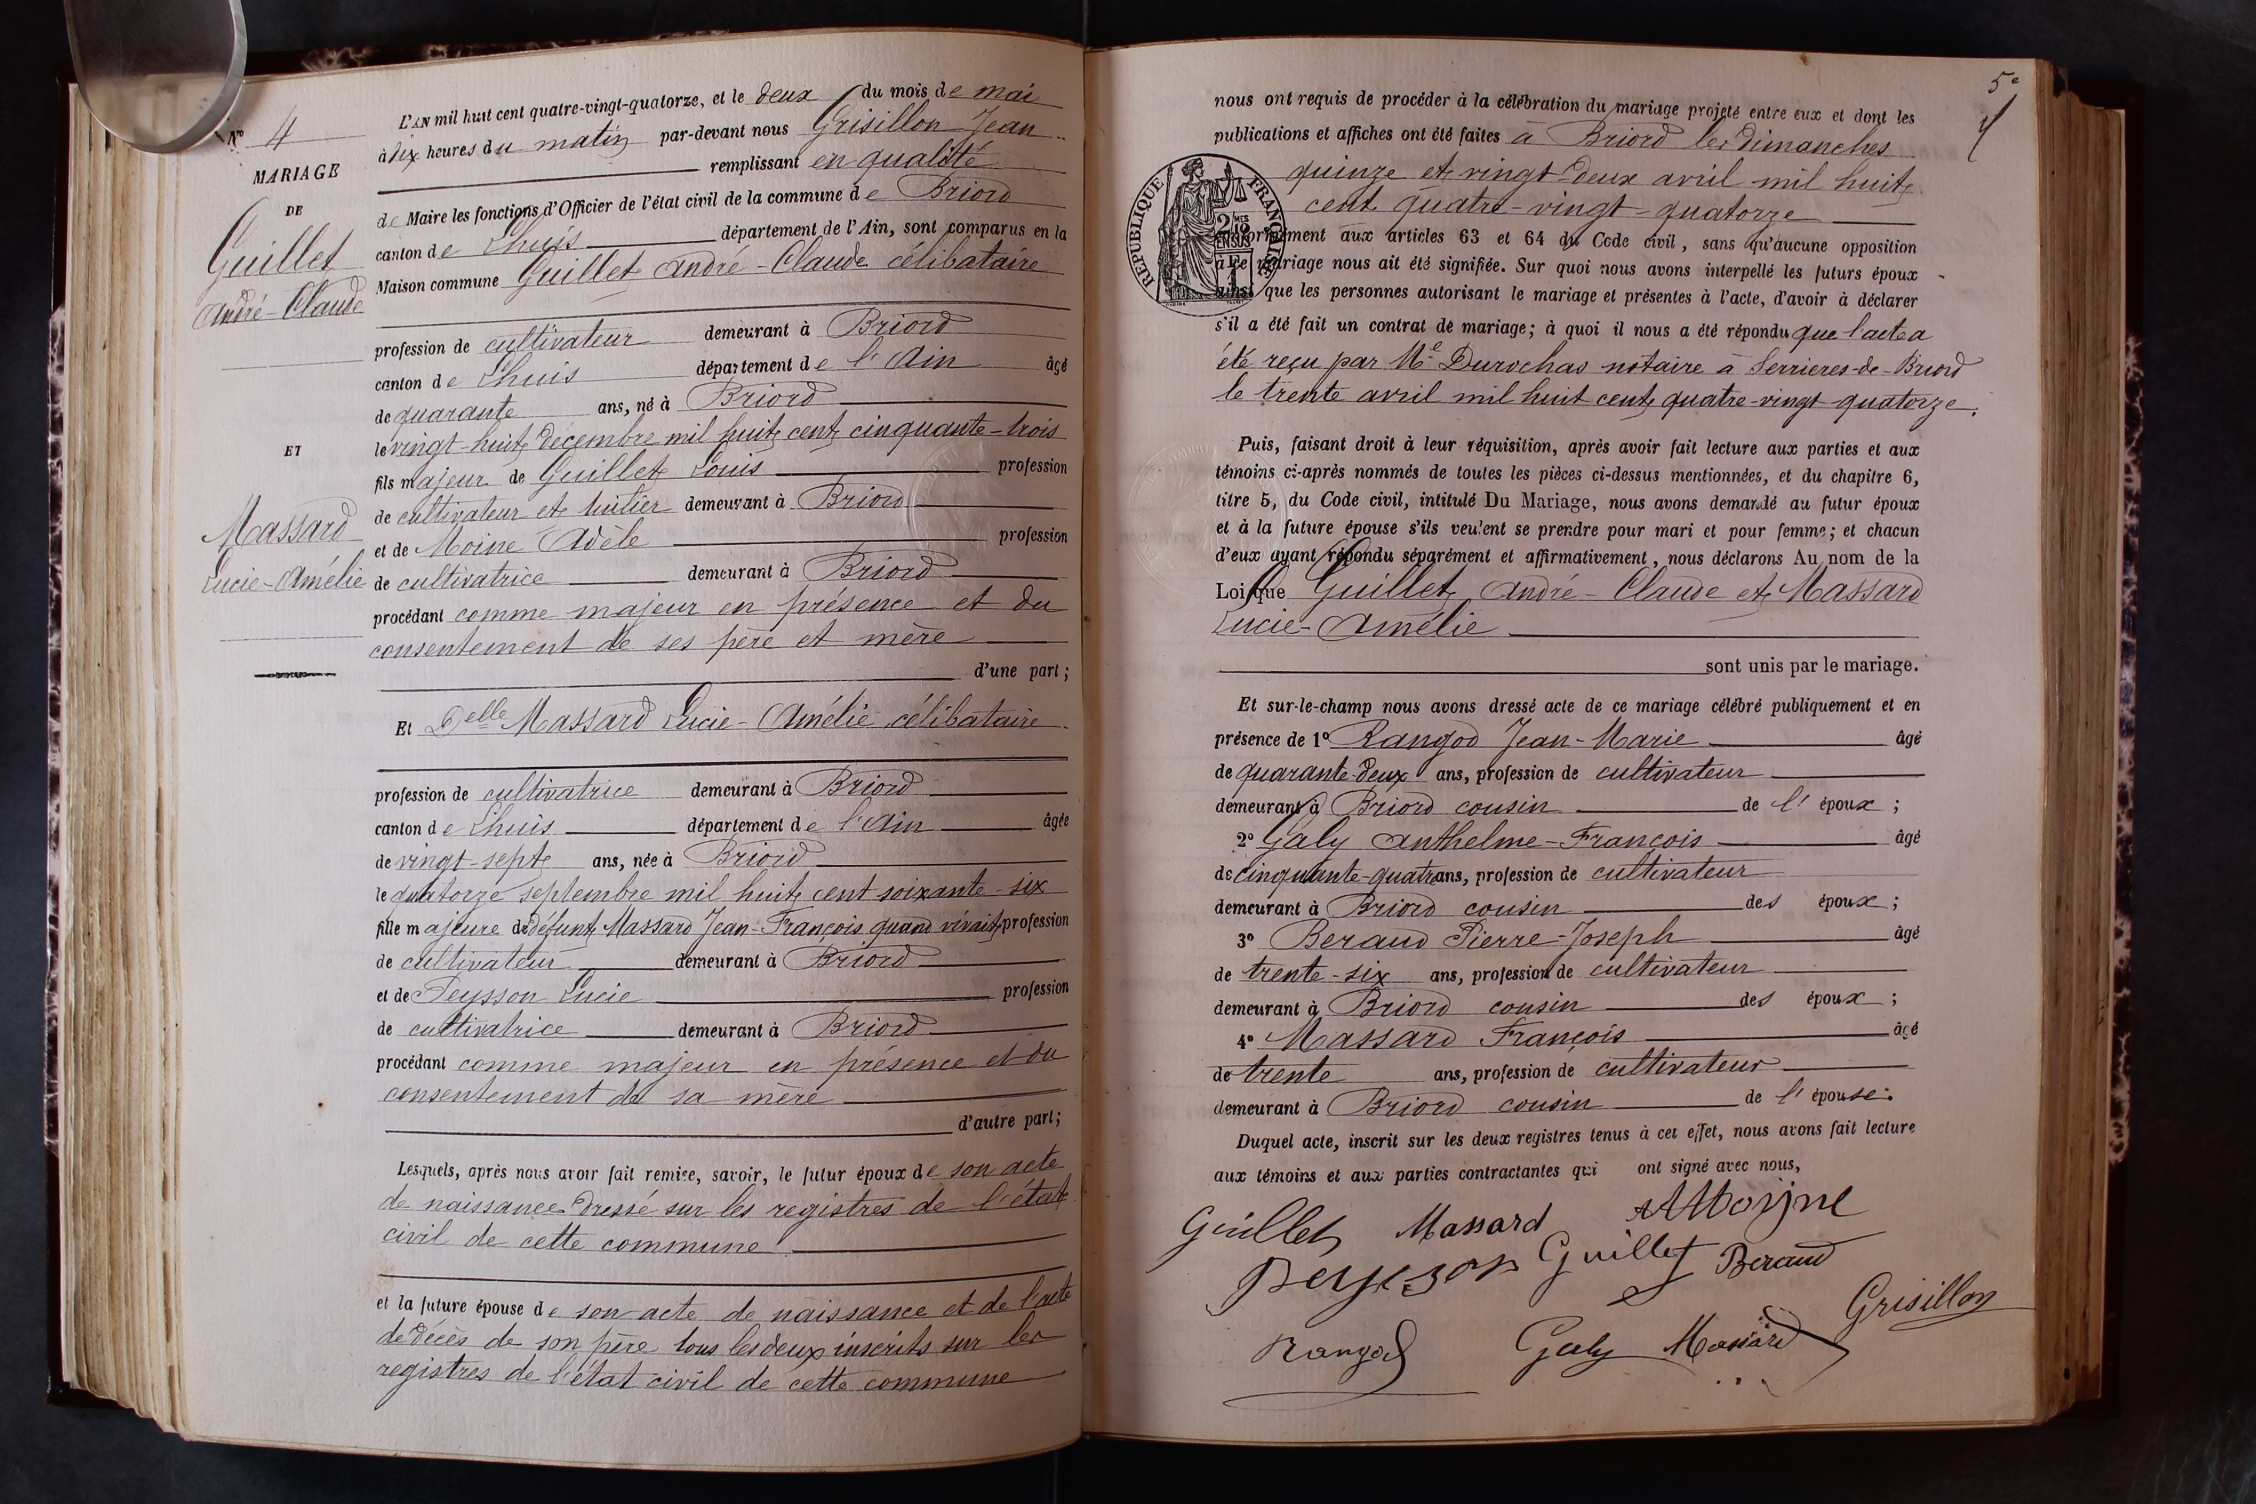 N° 4
MARIAGE
DE
Guillet
André-Claude
ET
Massard
Lucie-Amélie
L'AN mil huit cent quatre-vingt-quatorze, et le deux du mois de mai
à dix heures du matin par-devant nous Grisillon Jean
remplissant en qualité
de Maire les fonctions d'Officier de l'état civil de la commune de Briord
canton de Lhuis département de l'Ain, sont comparus en la
Maison commune Guillet André-Claude célibataire
profession de cultivateur demeurant à Briord
canton de Lhuis département de l'Ain âgé
de quarante ans, né à Briord
le vingt-huit décembre mil huit cent cinquante-trois
fils majeur de Guillet Louis profession
de cultivateur et huilier demeurant à Briord
et de Moine Adèle profession
de cultivatrice demeurant à Briord
procédant comme majeur en présence et du
consentement de ses père et mère
d'une part;
Et Delle Massard Lucie-Amélie célibataire
profession de cultivatrice demeurant à Briord
canton de Lhuis département de l'Ain âgée
de vingt-sept ans, née à Briord
le quatorze septembre mil huit cent soixante-six
fille majeure de défunt Massard Jean-François quand vivait profession
de cultivateur demeurant à Briord
et de Peysson Lucie profession
de cultivatrice demeurant à Briord
procédant comme majeur en présence et du
consentement de sa mère
d'autre part;
Lesquels, après nous avoir fait remise, savoir, le futur époux de son acte
de naissance dressé sur les registres de l'état
civil de cette commune
et la future épouse de son acte de naissance et de l'acte
de décès de son père tous les deux inscrits sur les
registres de l'état civil de cette commune
5e
nous ont requis de procéder à la célébration du mariage projeté entre eux et dont les
publications et affiches ont été faites à Briord les dimanches
quinze et vingt-deux avril mil huit
cent quatre-vingt-quatorze
RÉPUBLIQUE FRANÇAISE
conformément aux articles 63 et 64 du Code civil, sans qu'aucune opposition
à ce mariage nous ait été signifiée. Sur quoi nous avons interpellé les futurs époux
ainsi que les personnes autorisant le mariage et présentes à l'acte, d'avoir à déclarer
s'il a été fait un contrat de mariage; à quoi il nous a été répondu que l'acte a
été reçu par Me Durochas notaire à Serrieres-de-Briord
le trente avril mil huit cent quatre-vingt-quatorze.
Puis, faisant droit à leur réquisition, après avoir fait lecture aux parties et aux
témoins ci-après nommés de toutes les pièces ci-dessus mentionnées, et du chapitre 6,
titre 5, du Code civil, intitulé Du Mariage, nous avons demandé au futur époux
et à la future épouse s'ils veulent se prendre pour mari et pour femme; et chacun
d'eux ayant répondu séparément et affirmativement, nous déclarons Au nom de la
Loi que Guillet André-Claude et Massard
Lucie-Amélie
sont unis par le mariage.
Et sur-le-champ nous avons dressé acte de ce mariage célébré publiquement et en
présence de 1° Rangod Jean-Marie âgé
de quarante-deux ans, profession de cultivateur
demeurant à Briord cousin de l'époux;
2° Galy Anthelme-François âgé
de cinquante-quatre ans, profession de cultivateur
demeurant à Briord cousin des époux;
3° Beraud Pierre-Joseph âgé
de trente-six ans, profession de cultivateur
demeurant à Briord cousin des époux;
4° Massard François âgé
de trente ans, profession de cultivateur
demeurant à Briord cousin de l'épouse.
Duquel acte, inscrit sur les deux registres tenus à cet effet, nous avons fait lecture
aux témoins et aux parties contractantes qui ont signé avec nous,
Guillet Massard AMoyne
Peysson Guillet Beraud
Grisillon
Rangod Galy Massard